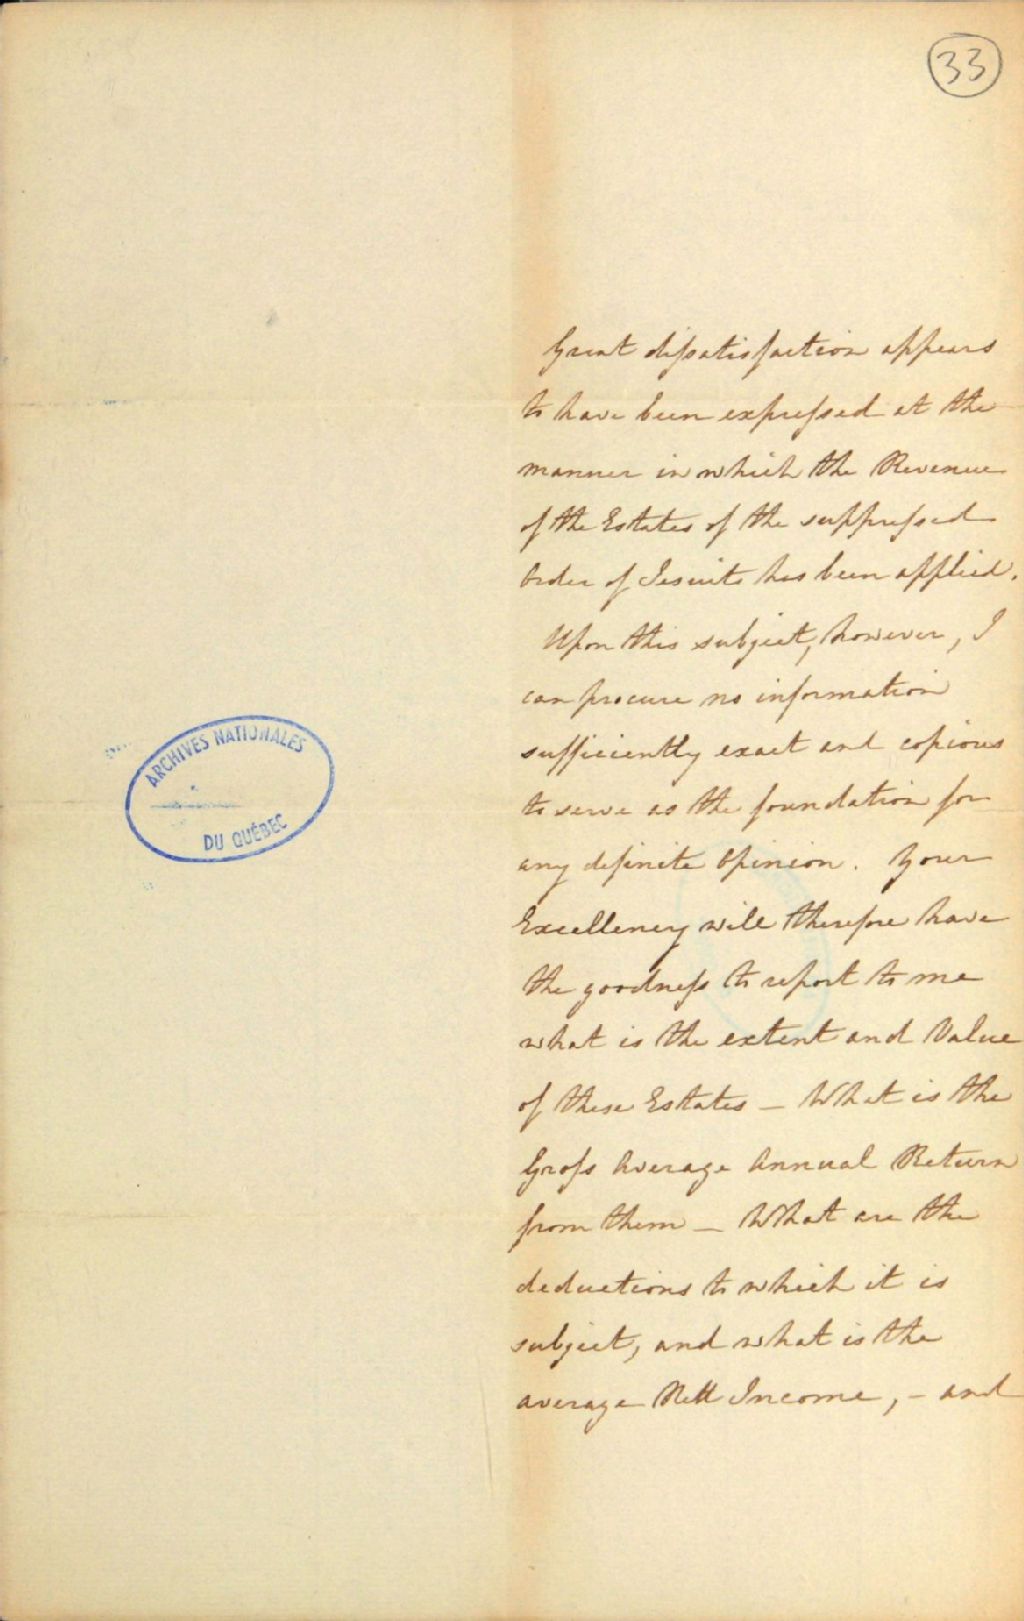 33
Great dissatisfaction appears
to have been expressed at the
manner in which the Revenue
of the Estates of the suppressed
Order of Jesuits has been applied.
Upon this subject, however, I
can procure no information
sufficiently exact and copious
to serve as the foundation for
any definite Opinion. Your
Excellency will therefore have
the goodness to report to me
what is the extent and Value
of these Estates – What is the
Gross Average Annual Return
from them – What are the
deductions to which it is
subject, and what is the
average Nett Income, – and
ARCHIVES NATIONALES
DU QUÉBEC